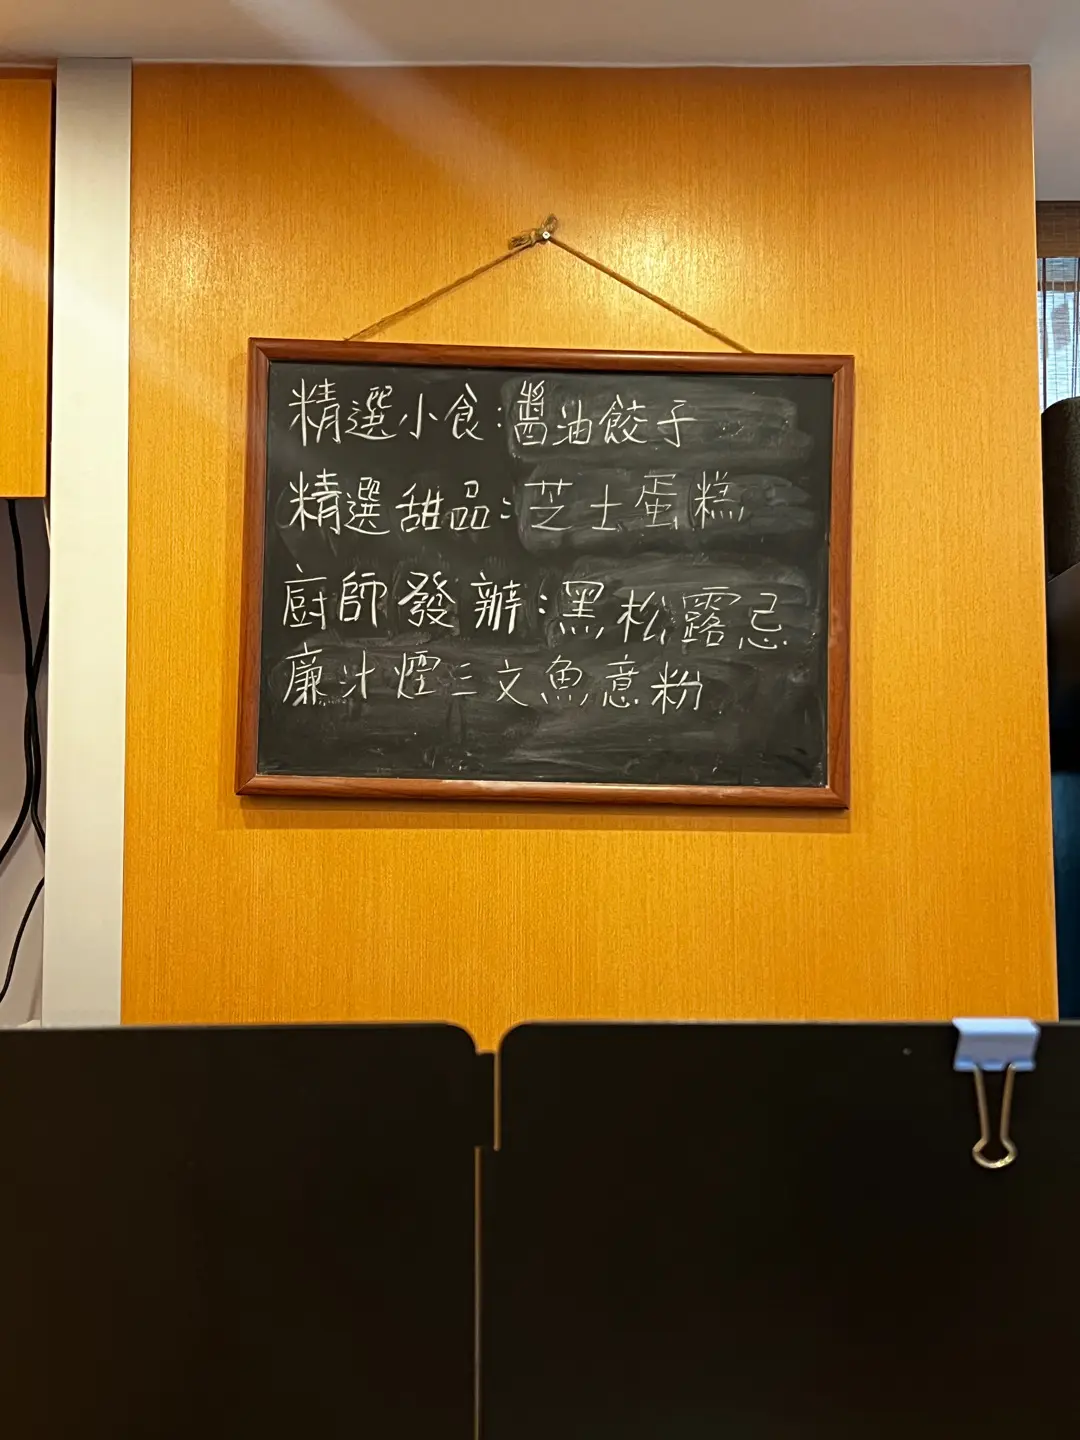 精選小食:醬油餃子
精選甜品:芝士蛋糕
廚師發辦:黑松露忌
廉汁煙三文魚意粉